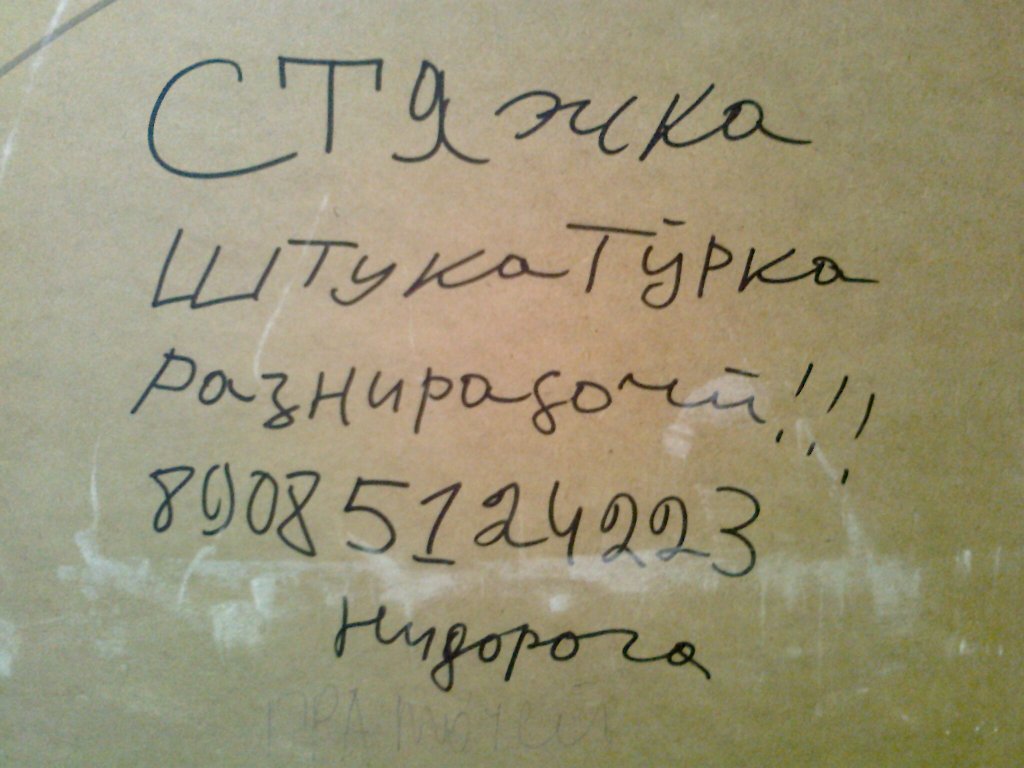 Стяжка
Штукатурка
Разнирабочий!!!
89085124223
Нидорога